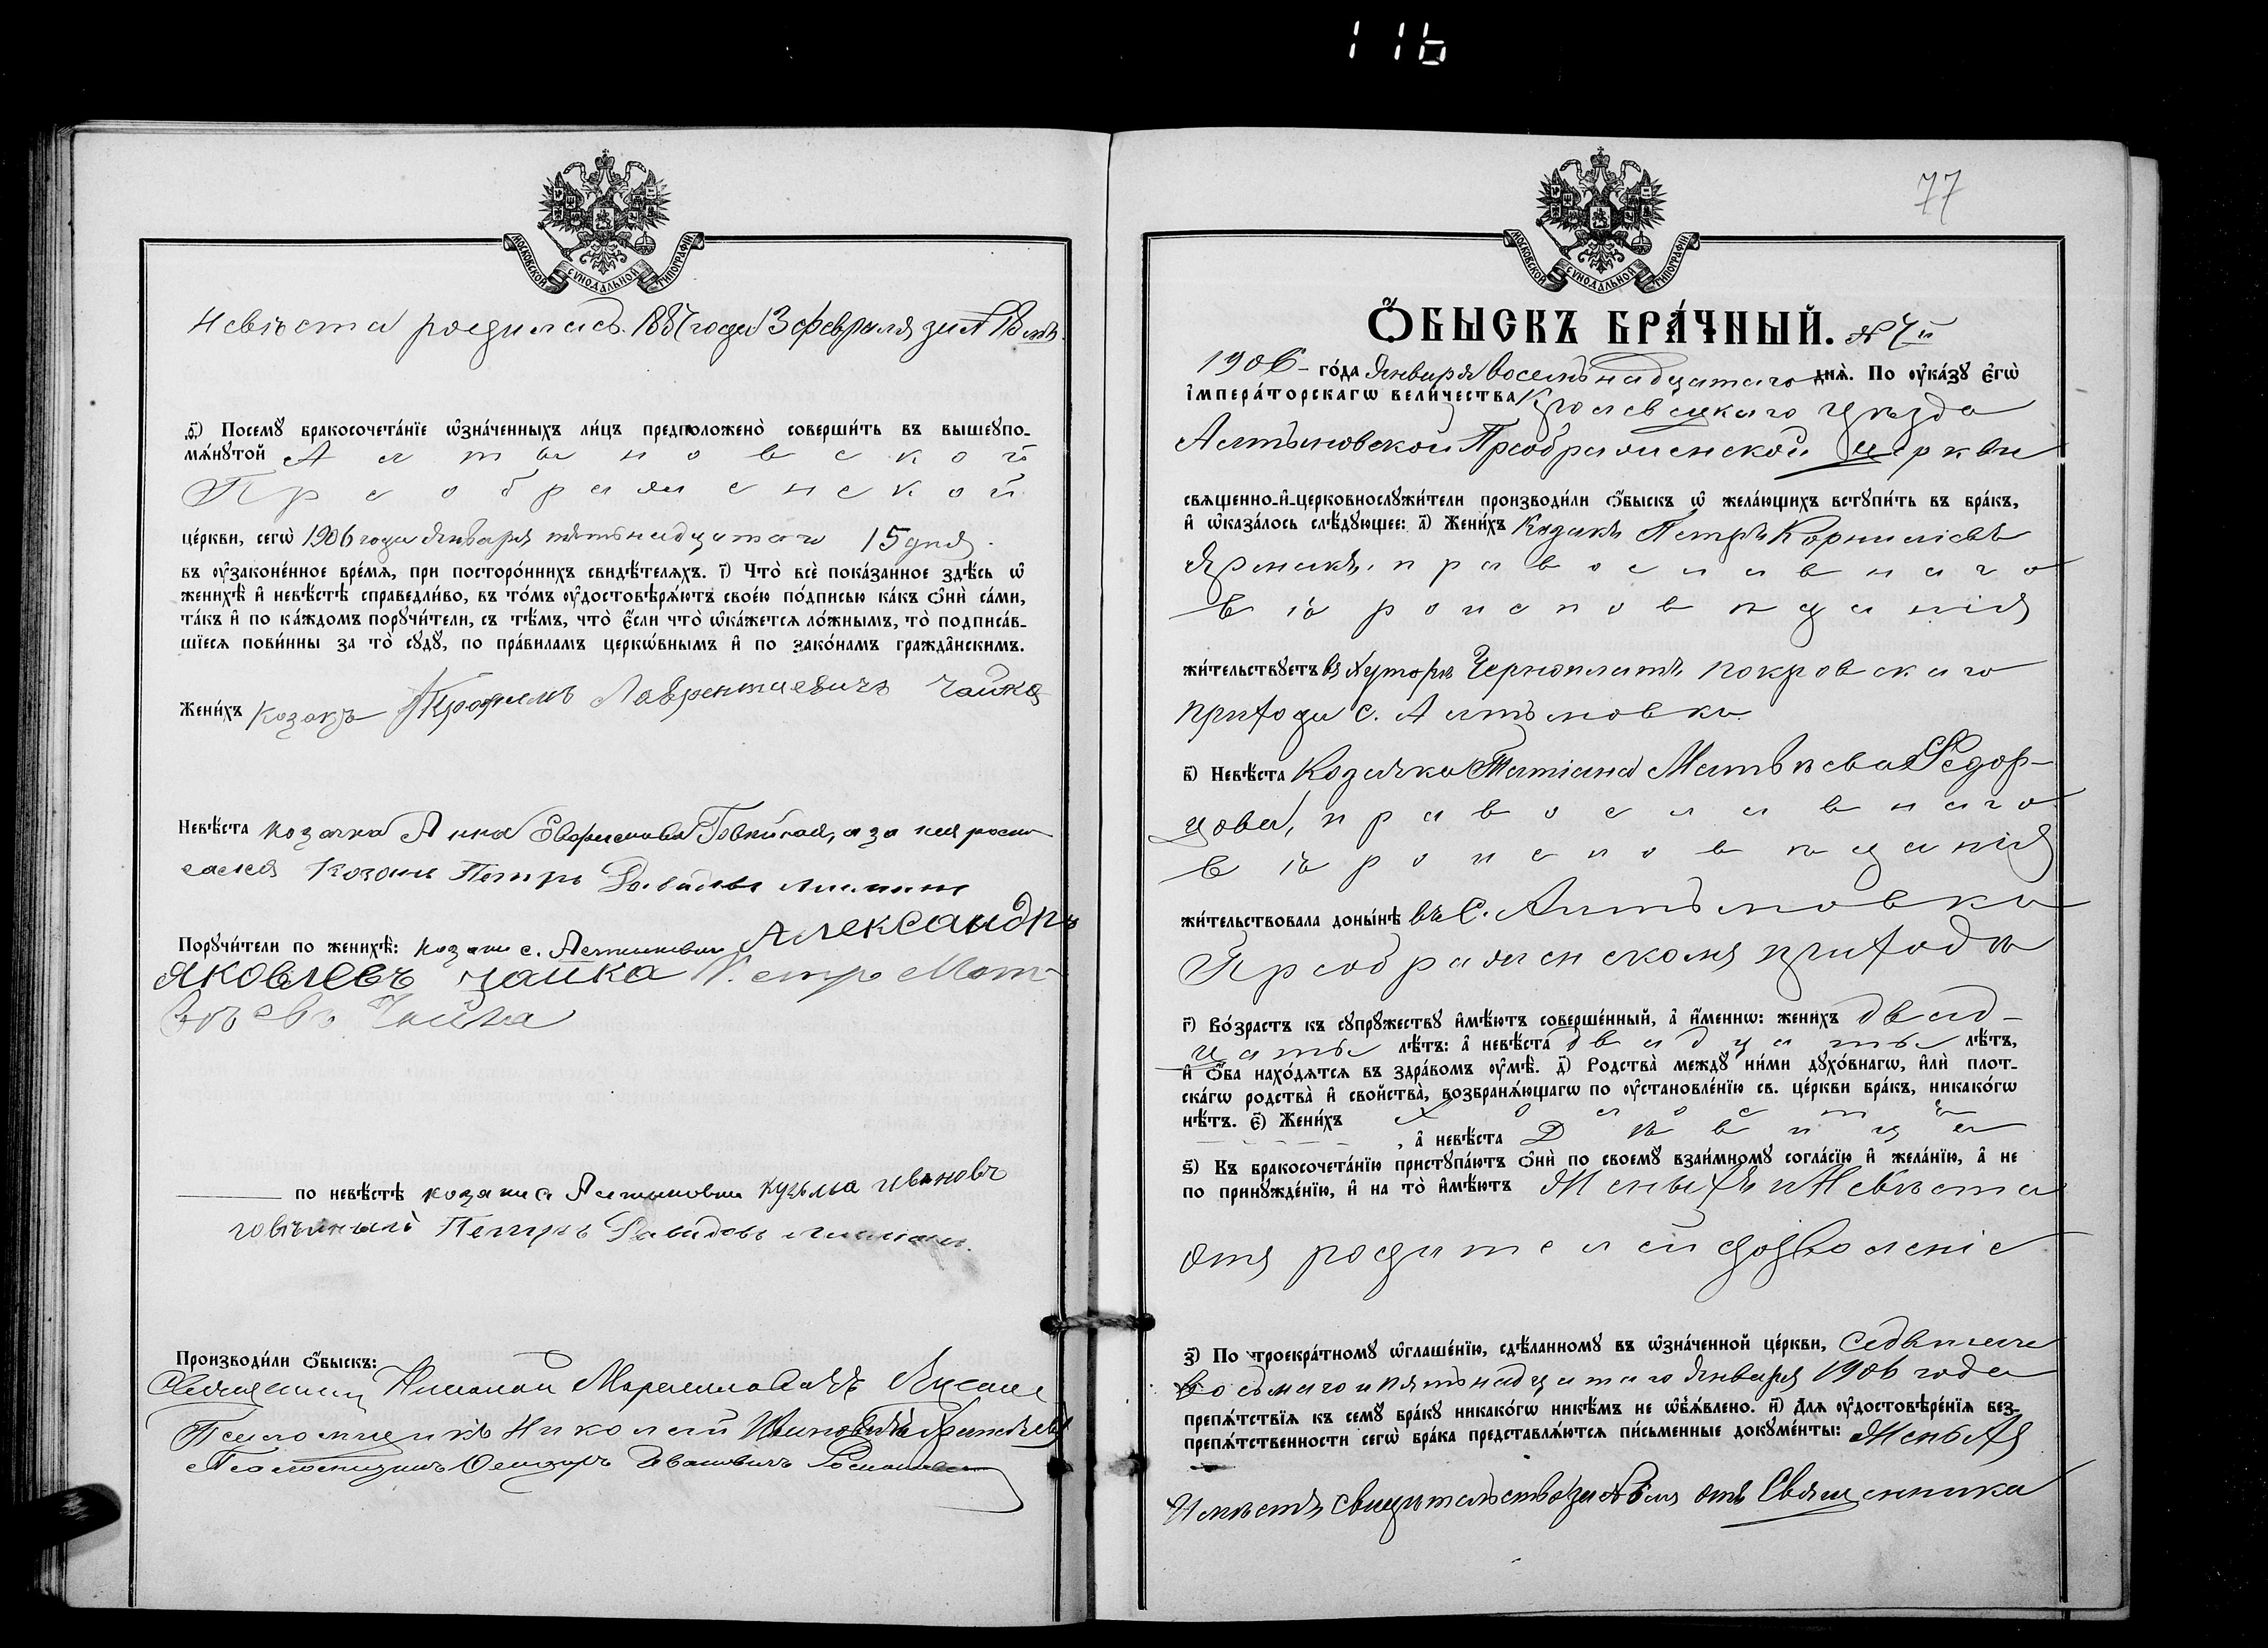 116
МОСКОВСКОЙ СѴНОДАЛЬНОЙ ТИПОГРАФІИ
Невѣста родилась 1887 года 13 февраля за № 18
ѳ҃) Посемꙋ̀ бракосочета́нїе ѡ҆зна́ченныхъ ли́цъ предположено̀ соверши́ть въ вышеꙋпо-
мѧ́нꙋтой Алтыновской
Преображенской
це́ркви, сегѡ̀ 1906 года Января пятьнадцатаго 15 дня.
въ ᲂу҆законе́нное вре́мѧ, при посторо́ннихъ свидѣ́телѧхъ. і҃) Что̀ всѐ пока́занное здѣ́сь ѡ҆
женихѣ̀ и҆ невѣ́стѣ справедли́во, въ то́мъ ᲂу҆достовѣрѧ́ютъ свое́ю по́дписью ка́къ ѻ҆нѝ са́ми,
та́къ и҆ по ка́ждомъ порꙋчи́тели, съ тѣ́мъ, что̀ є҆́сли что̀ ѡ҆ка́жетсѧ ло́жнымъ, то̀ подписа́в-
шїесѧ пови́нны за то̀ сꙋдꙋ̀, по пра́виламъ церкѡ́внымъ и҆ по зако́намъ гражда̑нскимъ.
Жени́хъ Козакъ Трофимъ Лаврентиевичъ Чайка
Невѣ́ста козачка Анна а за нея роспи-
сался Козакъ Петръ
Порꙋчи́тели по женихѣ̀: козаки с. Алтыновки Александръ
Яковлевъ Чайка Петръ Мат-
вѣевъ Чайка
по невѣ́стѣ козаки с. Алтыновки Кузьма Ивановъ
Петръ Давидовъ
Производи́ли ѻ҆́быскъ:
Священникъ Николай
Псаломщикъ Николай
Псаломщикъ Ивановичъ
77
МОСКОВСКОЙ СѴНОДАЛЬНОЙ ТИПОГРАФІИ
Ѻ҆́БЫСКЪ БРА́ЧНЫЙ. №
1906 го́да Января восемьнадцатаго днѧ̀. По ᲂу҆ка́зꙋ є҆гѡ̀
і҆мпера́торскагѡ вели́чества Кролевецкаго уѣзда
Алтыновской Преображенской церкви
свѧще́нно-и҆-церковнослꙋжи́тели производи́ли ѻ҆́быскъ ѡ҆ жела́ющихъ встꙋпи́ть въ бра́къ,
и҆ ѡ҆каза́лось слѣ́дꙋющее: а҃) Жени́хъ Козакъ Петръ Корнилiевъ
православнаго
вѣроисповѣданiя
жи́тельствꙋетъ въ хуторѣ покровскаго
прихода с. Алтыновки
в҃) Невѣ́ста Козачка Татiана Матвѣева Федор-
цова, православнаго
вѣроисповѣданiя
жи́тельствовала доны́нѣ въ с. Алтыновкѣ
Преображенскомъ приходѣ
г҃) Во́зрастъ къ сꙋпрꙋ́жествꙋ и҆мѣ́ютъ соверше́нный, а҆ и҆́меннѡ: жени́хъ двад-
цать лѣ́тъ: а҆ невѣ́ста двадцать лѣ́тъ,
и҆ ѻ҆́ба нахо́дѧтсѧ въ здра́вомъ ᲂу҆мѣ̀. д҃) Родства̀ междꙋ̀ ни́ми дꙋхо́внагѡ, и҆лѝ плот-
ска́гѡ родства̀ и҆ свойства̀, возбранѧ́ющагѡ по ᲂу҆становле́нїю св. це́ркви бра́къ, никако́гѡ
нѣ́тъ. є҃) Жени́хъ холостъ
, а҆ невѣ́ста Дѣвица
ѕ҃) Къ бракосочета́нїю пристꙋпа́ютъ ѻ҆нѝ по своемꙋ̀ взаи́мномꙋ согла́сїю и҆ жела́нїю, а҆ не
по принꙋжде́нїю, и҆ на то̀ и҆мѣ́ютъ Женихъ и Невѣста
отъ родителей дозволенiе
з҃) По троекра́тномꙋ ѡ҆глаше́нїю, сдѣ́ланномꙋ въ ѡ҆зна́ченной це́ркви, седьмаго
восьмаго и пятьнадцатаго Января 1906 года
препѧ́тствїѧ къ семꙋ̀ бра́кꙋ никако́гѡ никѣ́мъ не ѡ҆б̾ѧ́влено. и҃) Длѧ ᲂу҆достовѣре́нїѧ без-
препѧ́тственности сегѡ̀ бра́ка представлѧ́ютсѧ пи́сьменные докꙋме́нты: Женихъ
Имѣетъ свидѣтельство за № отъ Священника